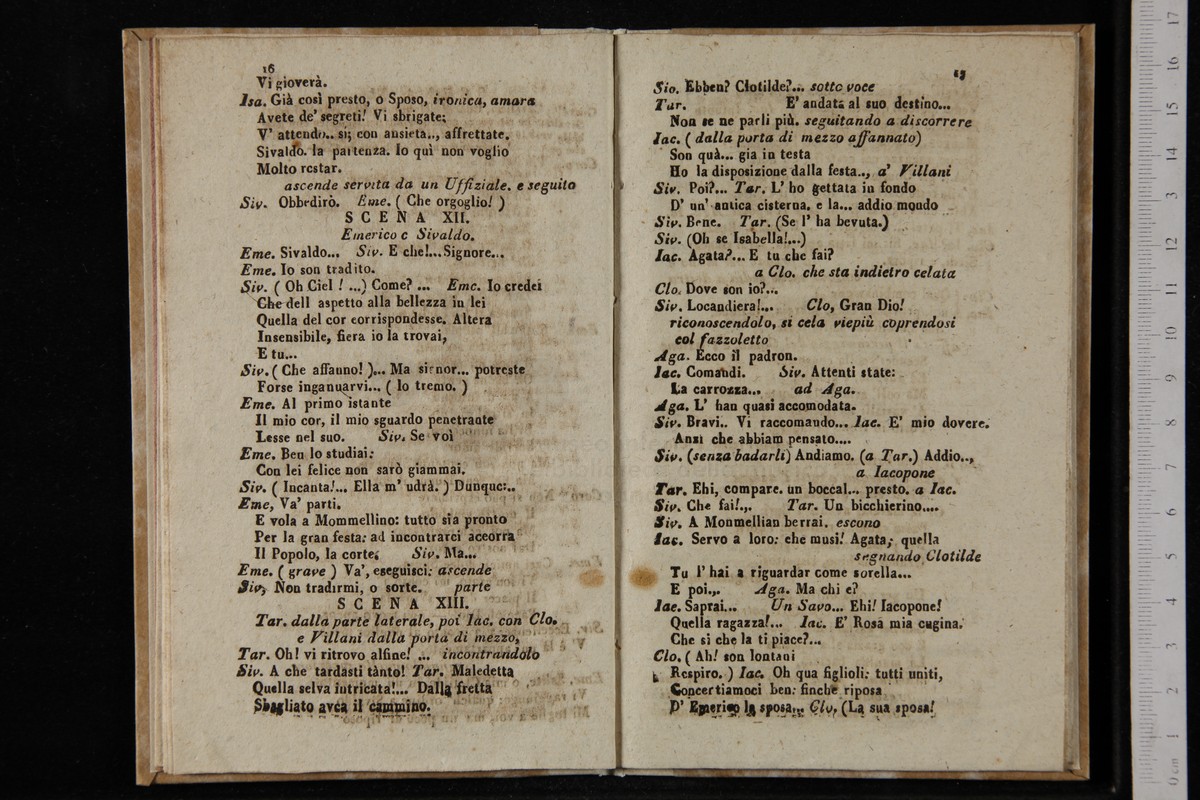 16
Vi gioverà.
Isa. Già così presto, o Sposo, ironica, amara
Avete de' segreti! Vi sbrigate;
V' attendo.. sì; con ansietà.., affrettate.
Sivaldo. la partenza. Io quì non voglio
Molto restar.
ascende servita da un Uffiziale. e seguito
Siv. Obbedirò. Eme. ( Che orgoglio! )
SCENA XII.
Emerico e Sivaldo.
Eme. Sivaldo... Siv. E che!...Signore...
Eme. Io son tradito.
Siv. ( Oh Ciel ! ...) Come? ... Eme. Io credei
Che dell aspetto alla bellezza in lei
Quella del cor corrispondesse. Altera
Insensibile, fiera io la trovai,
E tu...
Siv. ( Che affanno! )... Ma signor... potreste
Forse ingannarvi... ( Io tremo. )
Eme. Al primo istante
Il mio cor, il mio sguardo penetrante
Lesse nel suo. Siv. Se voi
Eme. Ben lo studiai:
Con lei felice non sarò giammai.
Siv. ( Incanta!... Ella m' udrà. ) Dunque:..
Eme, Va' parti.
E vola a Mommellino: tutto sia pronto
Per la gran festa: ad incontrarci aceorra
Il Popolo, la corte; Siv. Ma...
Eme. ( grave ) Va', eseguisci: ascende
Siv, Non tradirmi, o sorte. parte
SCENA XIII.
Tar. dalla parte laterale, poi Iac. con Clo.
e Villani dalla porta di mezzo,
Tar. Oh! vi ritrovo alfine! ... incontrandolo
Siv. A che tardasti tànto! Tar. Maledetta
Quella selva intricata!... Dalla fretta
Sbagliato avea il cammino.
17
Sio. Ebben? Clotilde?... sotto voce
Tar. E' andata al suo destino...
Non se ne parli più. seguitando a discorrere
Iac. ( dalla porta di mezzo affannato)
Son quà... gia in testa
Ho la disposizione dalla festa.., a' Villani
Siv. Poi?... Tar. L' ho gettata in fondo
D' un' antica cisterna. e la... addio mondo
Siv. Bene. Tar. (Se l' ha bevuta.)
Siv. (Oh se Isabella!...)
Iac. Agata?... E tu che fai?
a Clo. che sta indietro celata
Clo. Dove son io?...
Siv. Locandiera!... Clo, Gran Dio!
riconoscendolo, si cela viepiù coprendosi
col fazzoletto
Aga. Ecco il padron.
Iac. Comandi. Siv. Attenti state:
La carrozza... ad Aga.
Aga. L' han quasi accomodata.
Siv. Bravi.. Vi raccomando... Iac. E' mio dovere.
Anzi che abbiam pensato....
Siv. (senza badarli) Andiamo. (a Tar.) Addio..,
a Iacopone
Tar. Ehi, compare. un boccal... presto. a Iac.
Siv. Che fai!.,. Tar. Un bicchierino....
Siv. A Monmellian berrai. escono
Iac. Servo a loro: che musi! Agata; quella
segnando Clotilde
Tu l' hai a riguardar come sorella...
E poi.,. Aga. Ma chi e?
Iac. Saprai... Un Savo... Ehi! Iacopone!
Quella ragazza!... Iac. E' Rosa mia cugina.
Che sì che la ti piace?...
Clo. ( Ah! son lontani
Respiro. ) Iac. Oh qua figlioli: tutti uniti,
Concertiamoci ben: finchè riposa
D' Emerico la sposa... Clo, (La sua sposa!